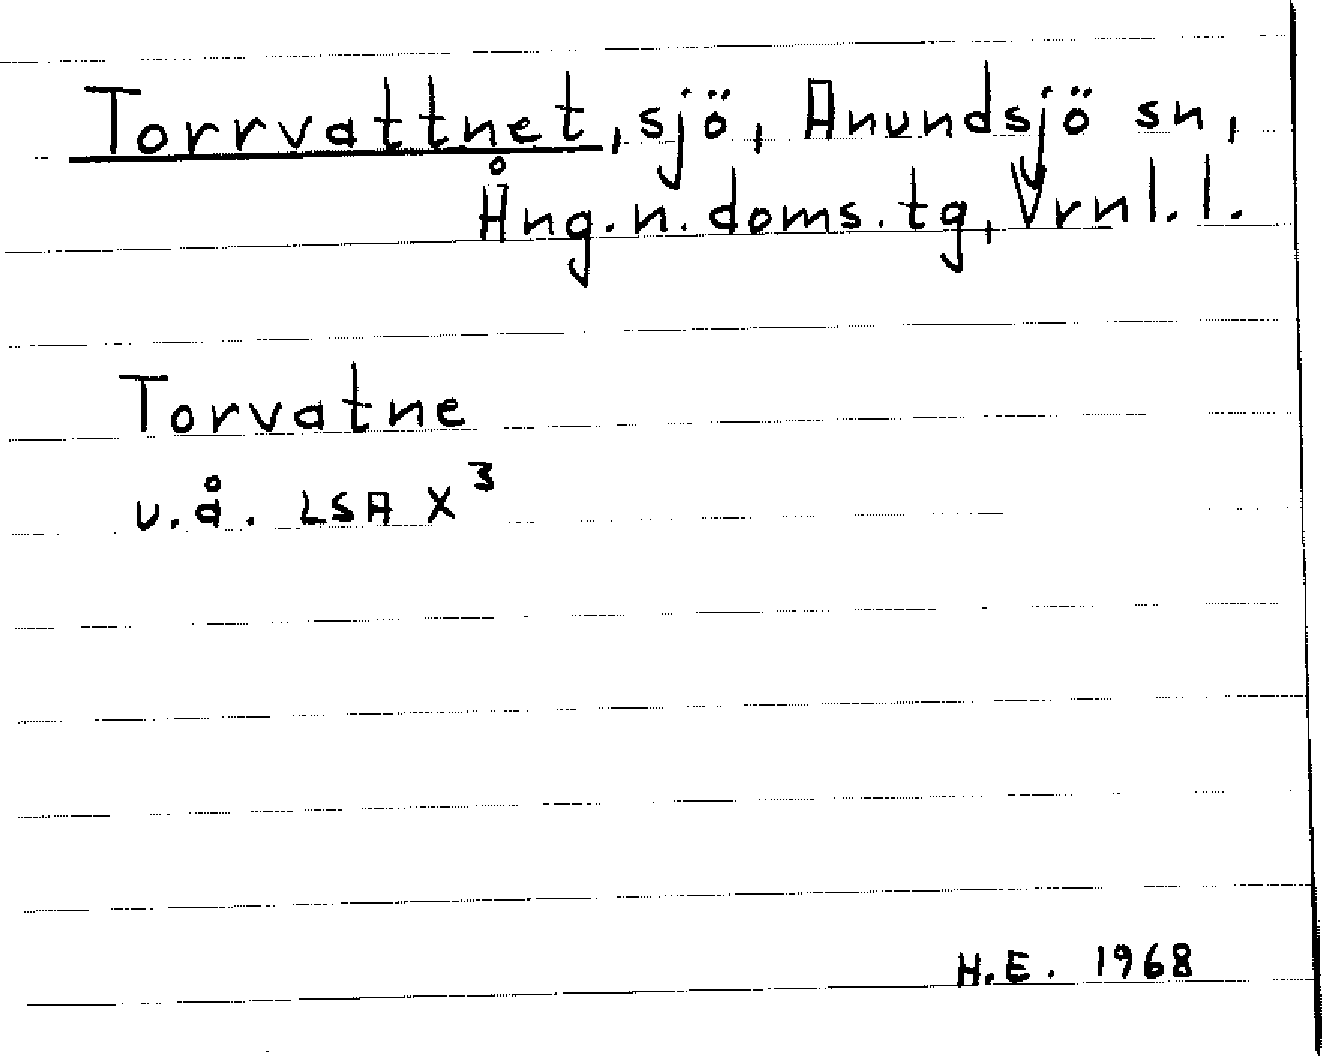 Torrvattnet, sjö, Anundsjö sn,
Ång. n. doms. tg, Vrnl. l.
Torvatne
u. å. LSA X³
H. E. 1968